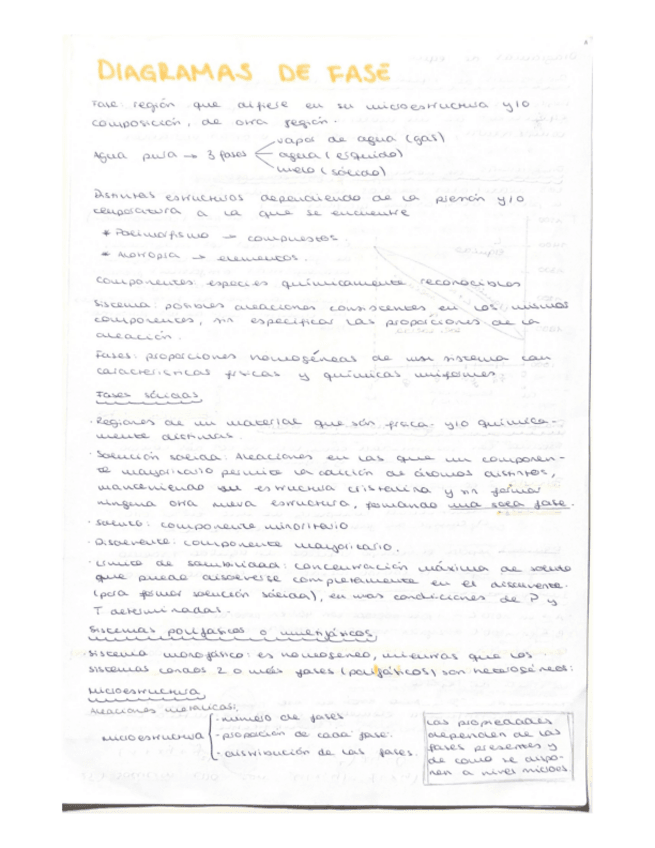 DIAGRAMAS DE FASE
Fase: región que difiere en su microestructura y/o
composición, de otra región.
Agua pura → 3 fases
vapor de agua (gas)
agua (líquido)
hielo (sólido)
Distintas estructuras dependiendo de la presión y/o
temperatura a la que se encuentre
* Polimorfismo → compuestos.
* Alotropía → elementos.
Componentes: especies químicamente reconocibles
Sistema: posibles aleaciones consistentes en los mismos
componentes, sin especificar las proporciones de la
aleación.
Fases: proporciones homogéneas de un sistema con
características físicas y químicas uniformes
Fases sólidas
· Regiones de un material que són física- y/o química-
mente distintas.
· Solución sólida: Aleaciones en las que un componen-
te mayoritario permite la adición de átomos distintos,
manteniendo su estructura cristalina y sin formar
ninguna otra nueva estructura, formando una sola fase.
· Soluto: componente minoritario
· Disolvente: componente mayoritario.
· Límite de solubilidad: concentración máxima de soluto
que puede disolverse completamente en el disolvente.
(para formar solución sólida), en unas condiciones de P y
T determinadas.
Sistemas polifásicos o multifásicos
· Sistema monofásico: es homogéneo, mientras que los
sistemas con 2 o más fases (polifásicos) son heterogéneos:
Microestructura
Aleaciones metálicas:
microestructura
· número de fases
· proporción de cada fase.
· distribución de las fases.
Las propiedades
dependen de las
fases presentes y
de como se dispo-
nen a nivel micros